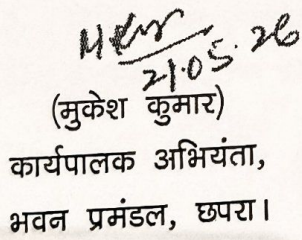 21.05.26
(मुकेश कुमार)
कार्यपालक अभियंता,
भवन प्रमंडल, छपरा।